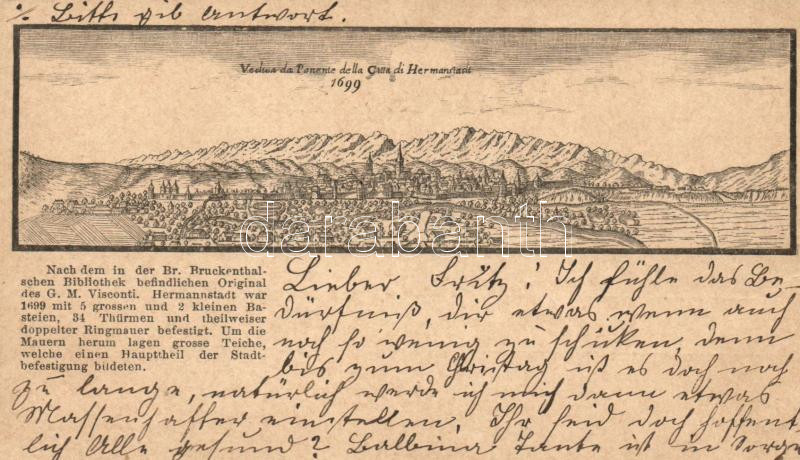 Bitte gib Antwort.
Veduta da Ponente della Citta di Hermanstadt
1699
darabanth
Nach dem in der Br. Bruckenthal-
schen Bibliothek befindlichen Original
des G. M. Visconti. Hermannstadt war
1699 mit 5 grossen und 2 kleinen Ba-
steien, 34 Thürmen und theilweiser
doppelter Ringmauer befestigt. Um die
Mauern herum lagen grosse Teiche,
welche einen Haupttheil der Stadt-
befestigung bildeten.
Lieber Fritz! Ich fühle das Be-
dürfniß, dir etwas wenn auch
noch so wenig zu schicken, denn
bis zum Christag ist es doch noch
zu lange, natürlich werde ich mich dann etwas
einstellen. Ihr seid doch hoffent-
lich Alle gesund? Balbina Tante ist in Sorge